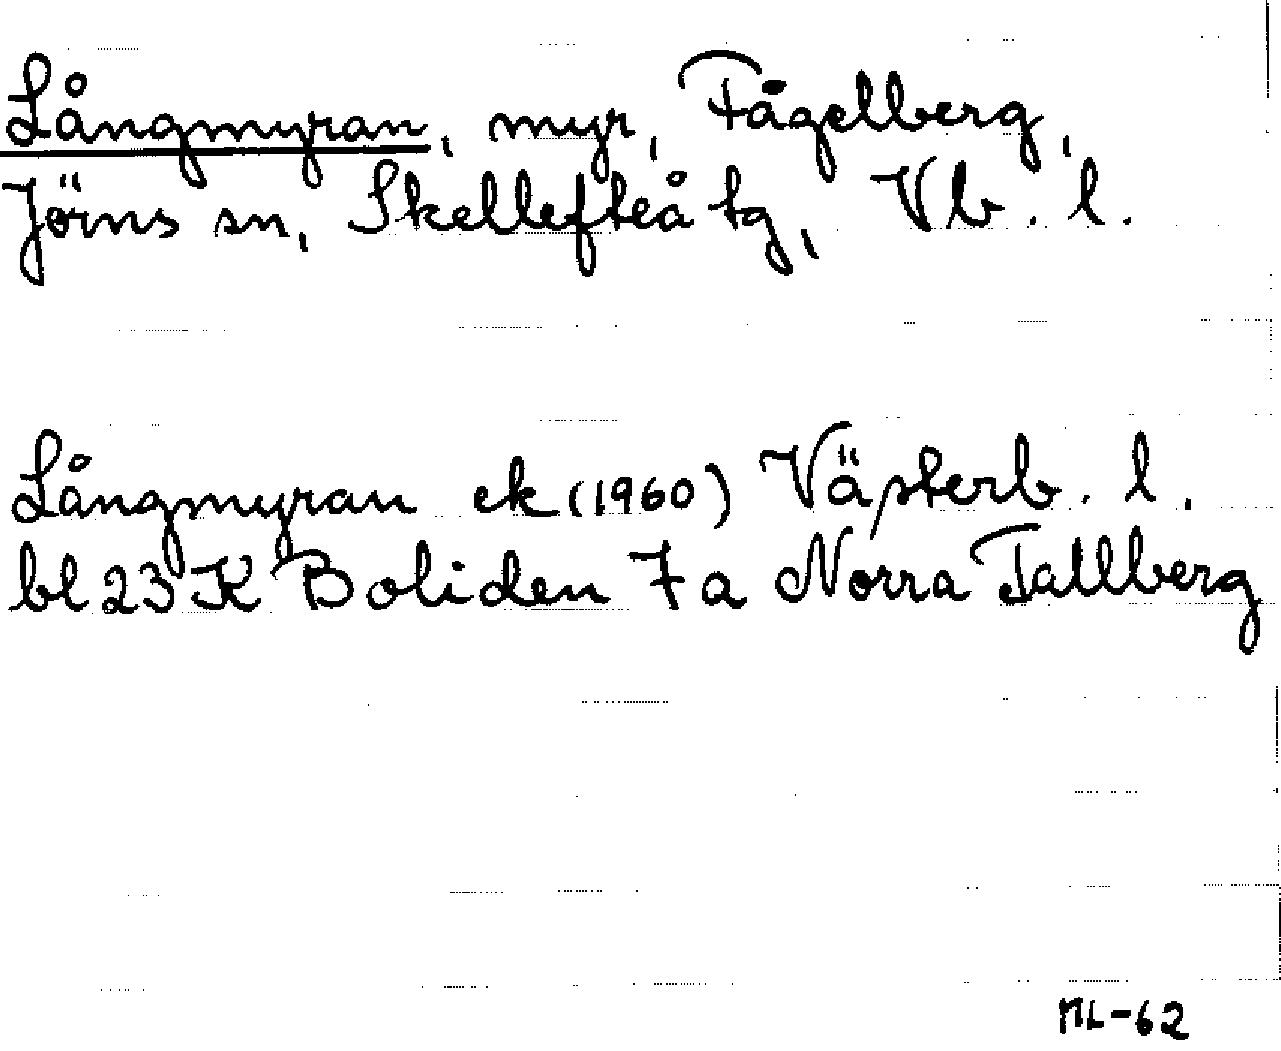 Långmyran, myr, Fågelberg,
Jörns sn, Skellefteå tg, Vb. l.
Långmyran ek (1960) Västerb. l.
bl 23 K Boliden 7 a Norra Tallberg
ML-62